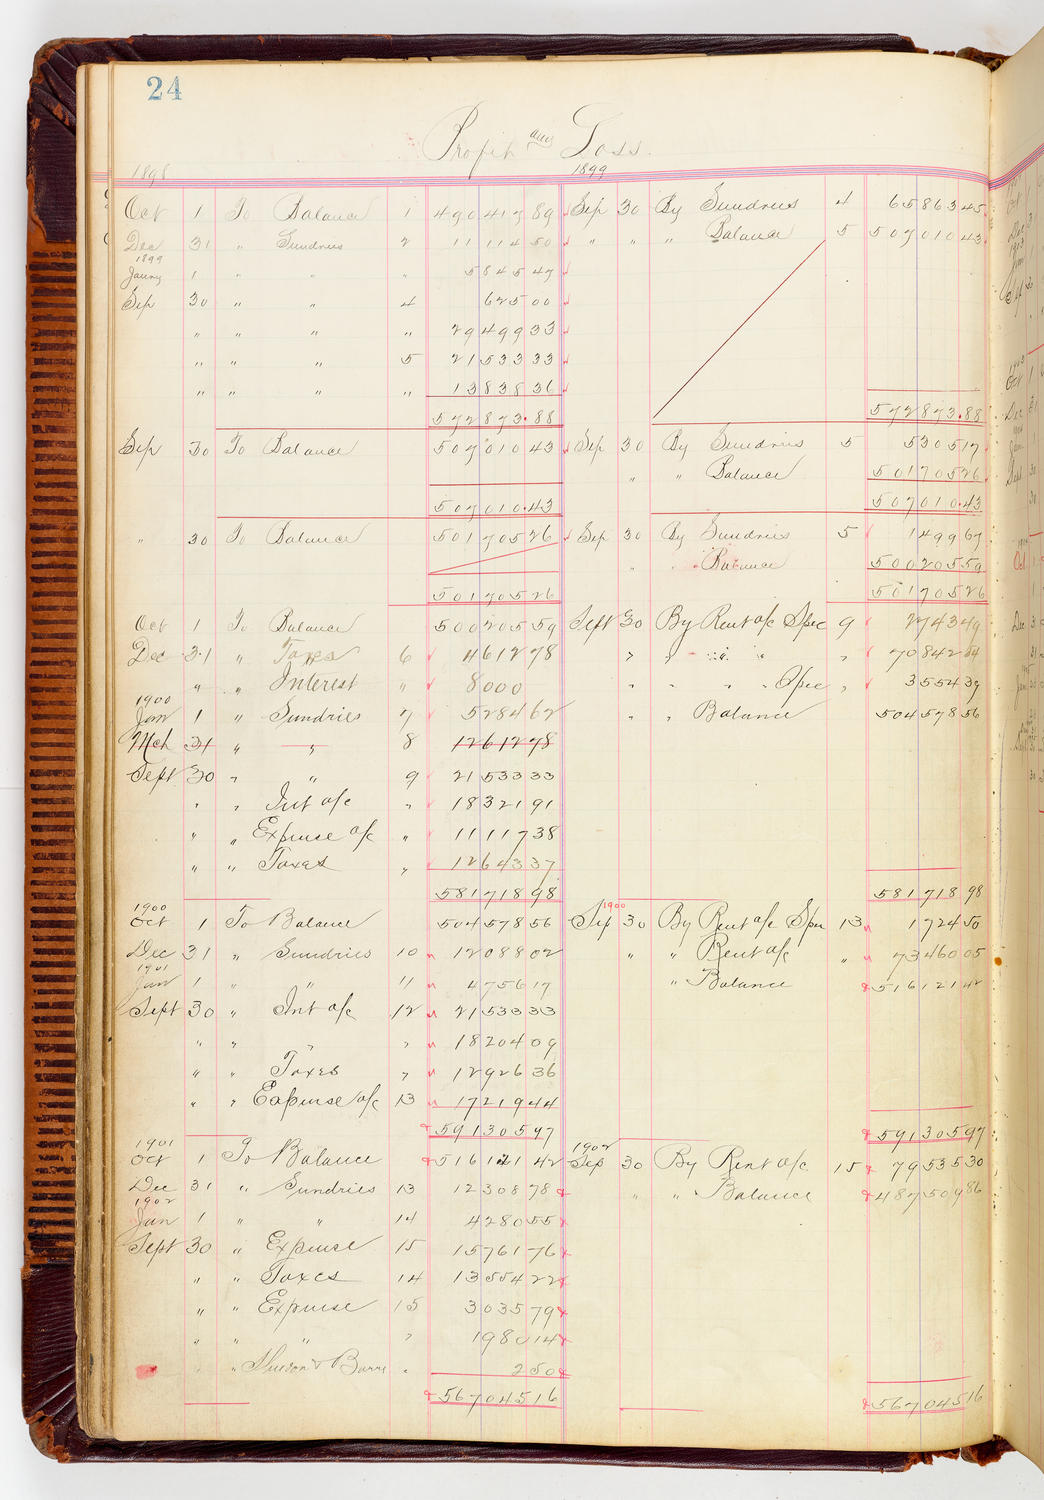 24
Profit and Loss
1898 1899
Oct 1 To Balance 1 490 417 89 Sep 30 By Sundries 4 65 863 45
Dec 31 " Sundries 2 11 114 50 " " " Balance 5 507 010 43
1899
Janny 1 " " " 5 845 47
Sep 30 " " 4 625 00
" " " " 29 499 33
" " " 5 21 533 33
" " " " 13 838 36
572 873.88 572 873.88
Sep 30 To Balance 507 010 43 Sep 30 By Sundries 5 5 305 17
" " Balance 501 705 26
507 010.43 507 010.43
" 30 To Balance 501 705 26 Sep 30 By Sundries 5 1 499 67
" " Balance 500 205 59
501 705 26 501 705 26
Oct 1 To Balance 500 205 59 Sept 30 By Rent a/c Spec 9 2 743 49
Dec 31 " Taxes 6 4 612 78 " " " " " 70 842 04
" " Interest " 80 00 " " " " Spec " 3 554 39
1900
Jan 1 " Sundries 7 5 284 62 " " Balance 504 578 56
Mch 31 " " 8 12 612 78
Sept 30 " " 9 21 533 33
" " Int a/c " 18 321 91
" " Expense a/c " 11 117 38
" " Taxes " 12 643 37
581 718 98 581 718 98
1900 1900
Oct 1 To Balance 504 578 56 Sep 30 By Rent a/c Spec 13 1 724 50
Dec 31 " Sundries 10 12 088 02 " " Rent a/c " 73 460 05
1901
Jan 1 " " 11 4 756 17 " Balance 516 121 42
Sept 30 " Int a/c 12 21 533 33
" " " " 18 204 09
" " Taxes " 12 926 36
" " Expense a/c 13 17 219 44
591 305 97 591 305 97
1901 1902
Oct 1 To Balance 516 121 42 Sep 30 By Rent a/c 15 79 535 30
Dec 31 " Sundries 13 12 308 78 " " Balance 487 509 86
1902
Jan 1 " " 14 4 280 55
Sept 30 " Expense 15 15 761 76
" " Taxes 14 13 554 22
" " Expense 15 3 035 79
" " " " 1 980 14
" " 2 50
567 045 16 567 045 16